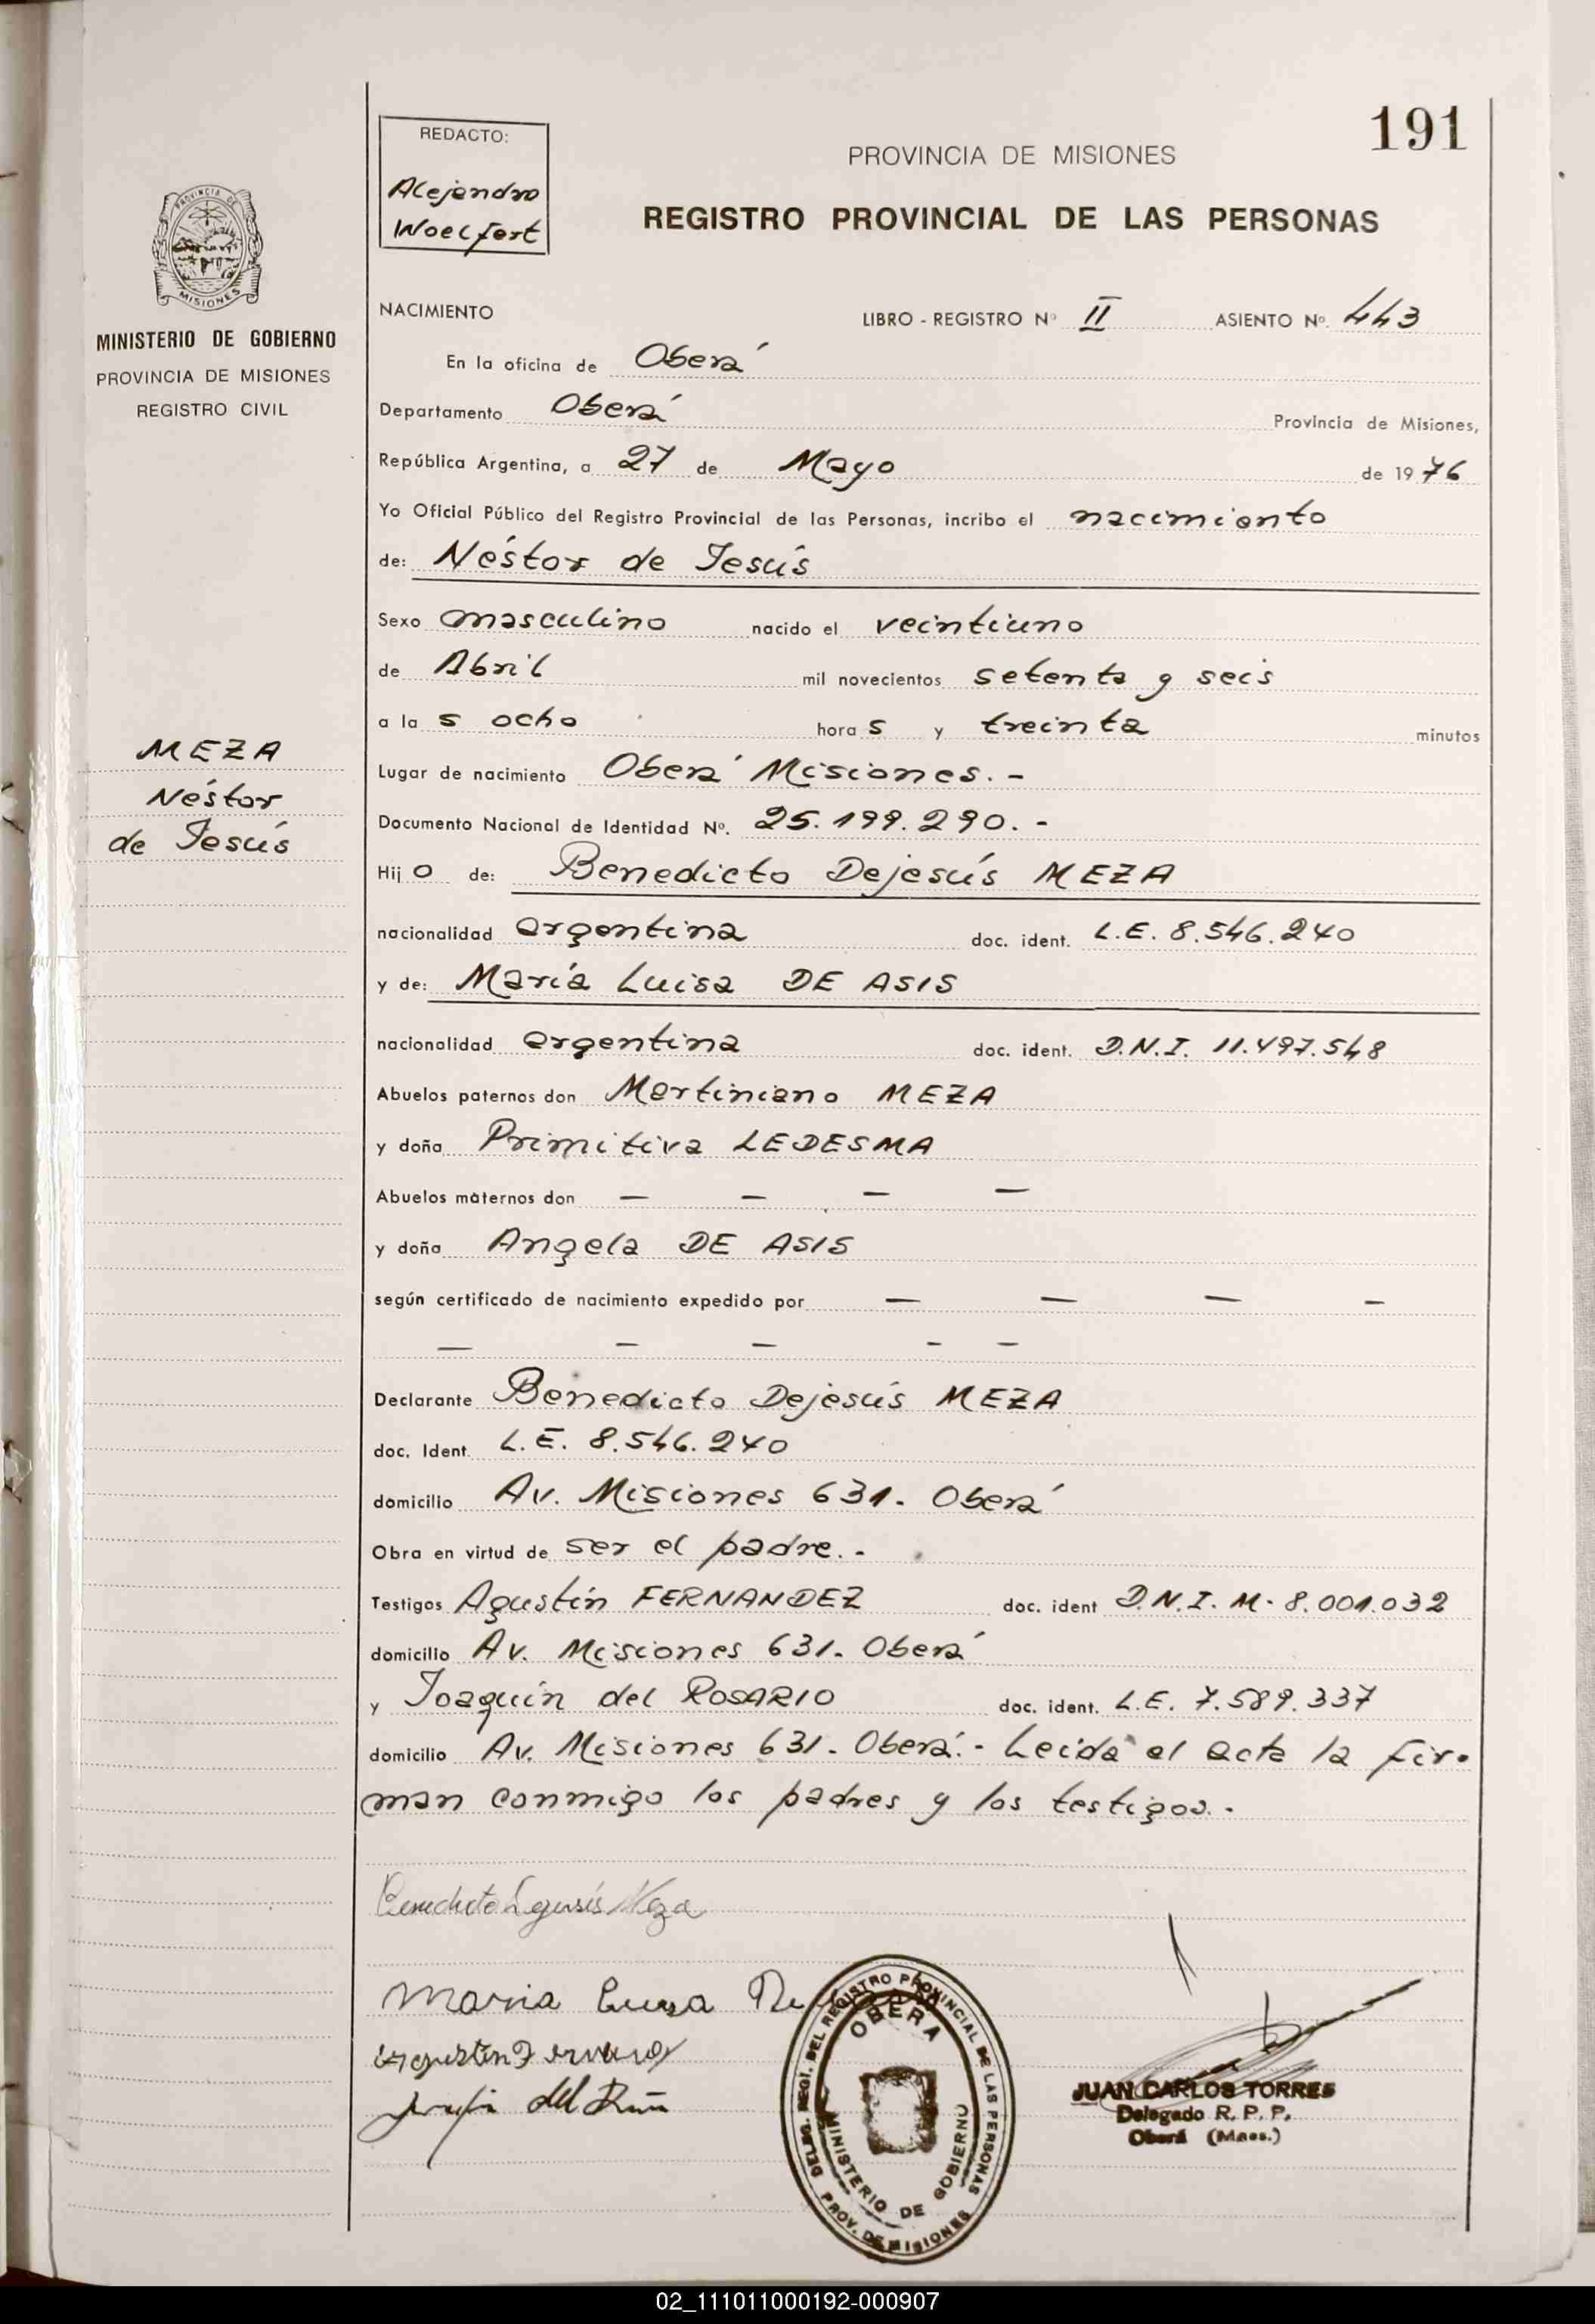 191
REDACTO:
Alejandro
Woelfert
PROVINCIA DE MISIONES
REGISTRO PROVINCIAL DE LAS PERSONAS
PROVINCIA DE
MISIONES
MINISTERIO DE GOBIERNO
PROVINCIA DE MISIONES
REGISTRO CIVIL
NACIMIENTO LIBRO - REGISTRO Nº II ASIENTO Nº 443
En la oficina de Oberá
Departamento Oberá Provincia de Misiones,
República Argentina, a 27 de Mayo de 1976
Yo Oficial Público del Registro Provincial de las Personas, incribo el nacimiento
de: Néstor de Jesús
Sexo masculino nacido el veintiuno
de Abril mil novecientos setenta y seis
a la s ocho hora s y treinta minutos
MEZA
Néstor
de Jesús
Lugar de nacimiento Oberá Misiones. -
Documento Nacional de Identidad Nº. 25.199.290. -
Hij o de: Benedicto Dejesús MEZA
nacionalidad argentina doc. ident. L.E. 8.546.240
y de: María Luisa DE ASIS
nacionalidad argentina doc. ident. D.N.I. 11.497.548
Abuelos paternos don Martiniano MEZA
y doña Primitiva LEDESMA
Abuelos maternos don — — — —
y doña Angela DE ASIS
según certificado de nacimiento expedido por — — — —
— — — — —
Declarante Benedicto Dejesús MEZA
doc. Ident. L.E. 8.546.240
domicilio Av. Misiones 631. Oberá
Obra en virtud de ser el padre. -
Testigos Agustín FERNANDEZ doc. ident D.N.I. M. 8.001.032
domicilio Av. Misiones 631. Oberá
y Joaquín del ROSARIO doc. ident. L.E. 7.589.337
domicilio Av. Misiones 631. Oberá. - Leída el acta la fir-
man conmigo los padres y los testigos. -
Benedicto Dejesús Meza
Maria Luisa De
DELEG. REGI. DEL REGISTRO PROVINCIAL DE LAS PERSONAS
OBERA
MINISTERIO DE GOBIERNO
PROV. DE MISIONES
JUAN CARLOS TORRES
Delegado R. P. P.
Oberá (Mnes.)
02_111011000192-000907